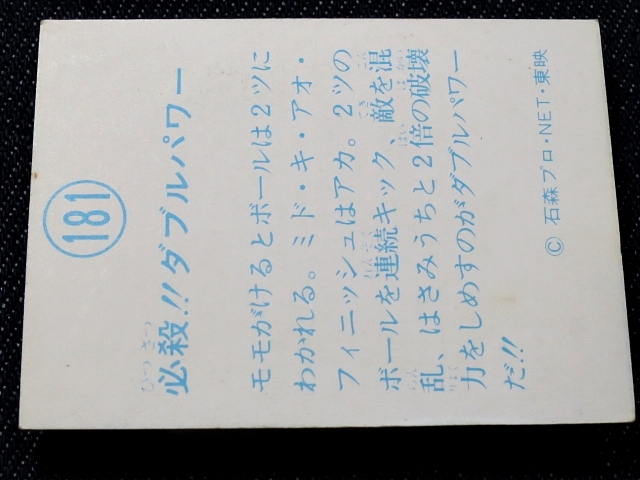 181
必殺!!ダブルパワー
モモがけるとボールは2ツに
わかれる。ミド・キ・アオ・
フィニッシュはアカ。2ツの
ボールを連続キック、敵を混
乱、はさみうちと2倍の破壊
力をしめすのがダブルパワー
だ!!
© 石森プロ・NET・東映